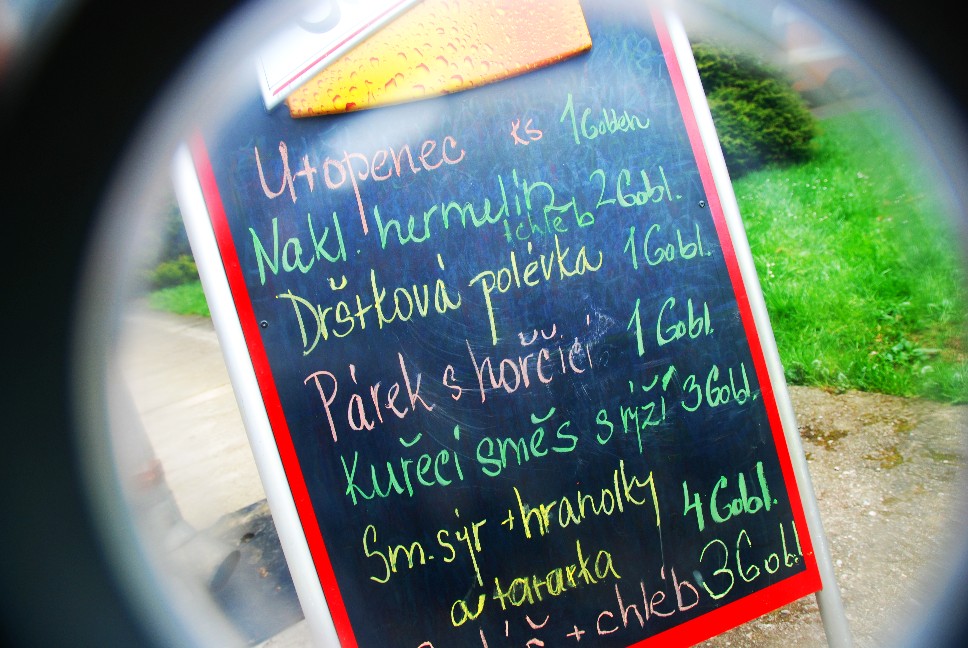 Utopenec ks 1Gobleh
Nakl. hermelín 2Gobl.
+chléb
Drštková polévka 1Gobl.
Párek s horčicí 1Gobl.
Kuřecí směs s rýží 3Gobl.
Sm. sýr + hranolky 4Gobl.
a tatarka
+ chléb 3Gobl.